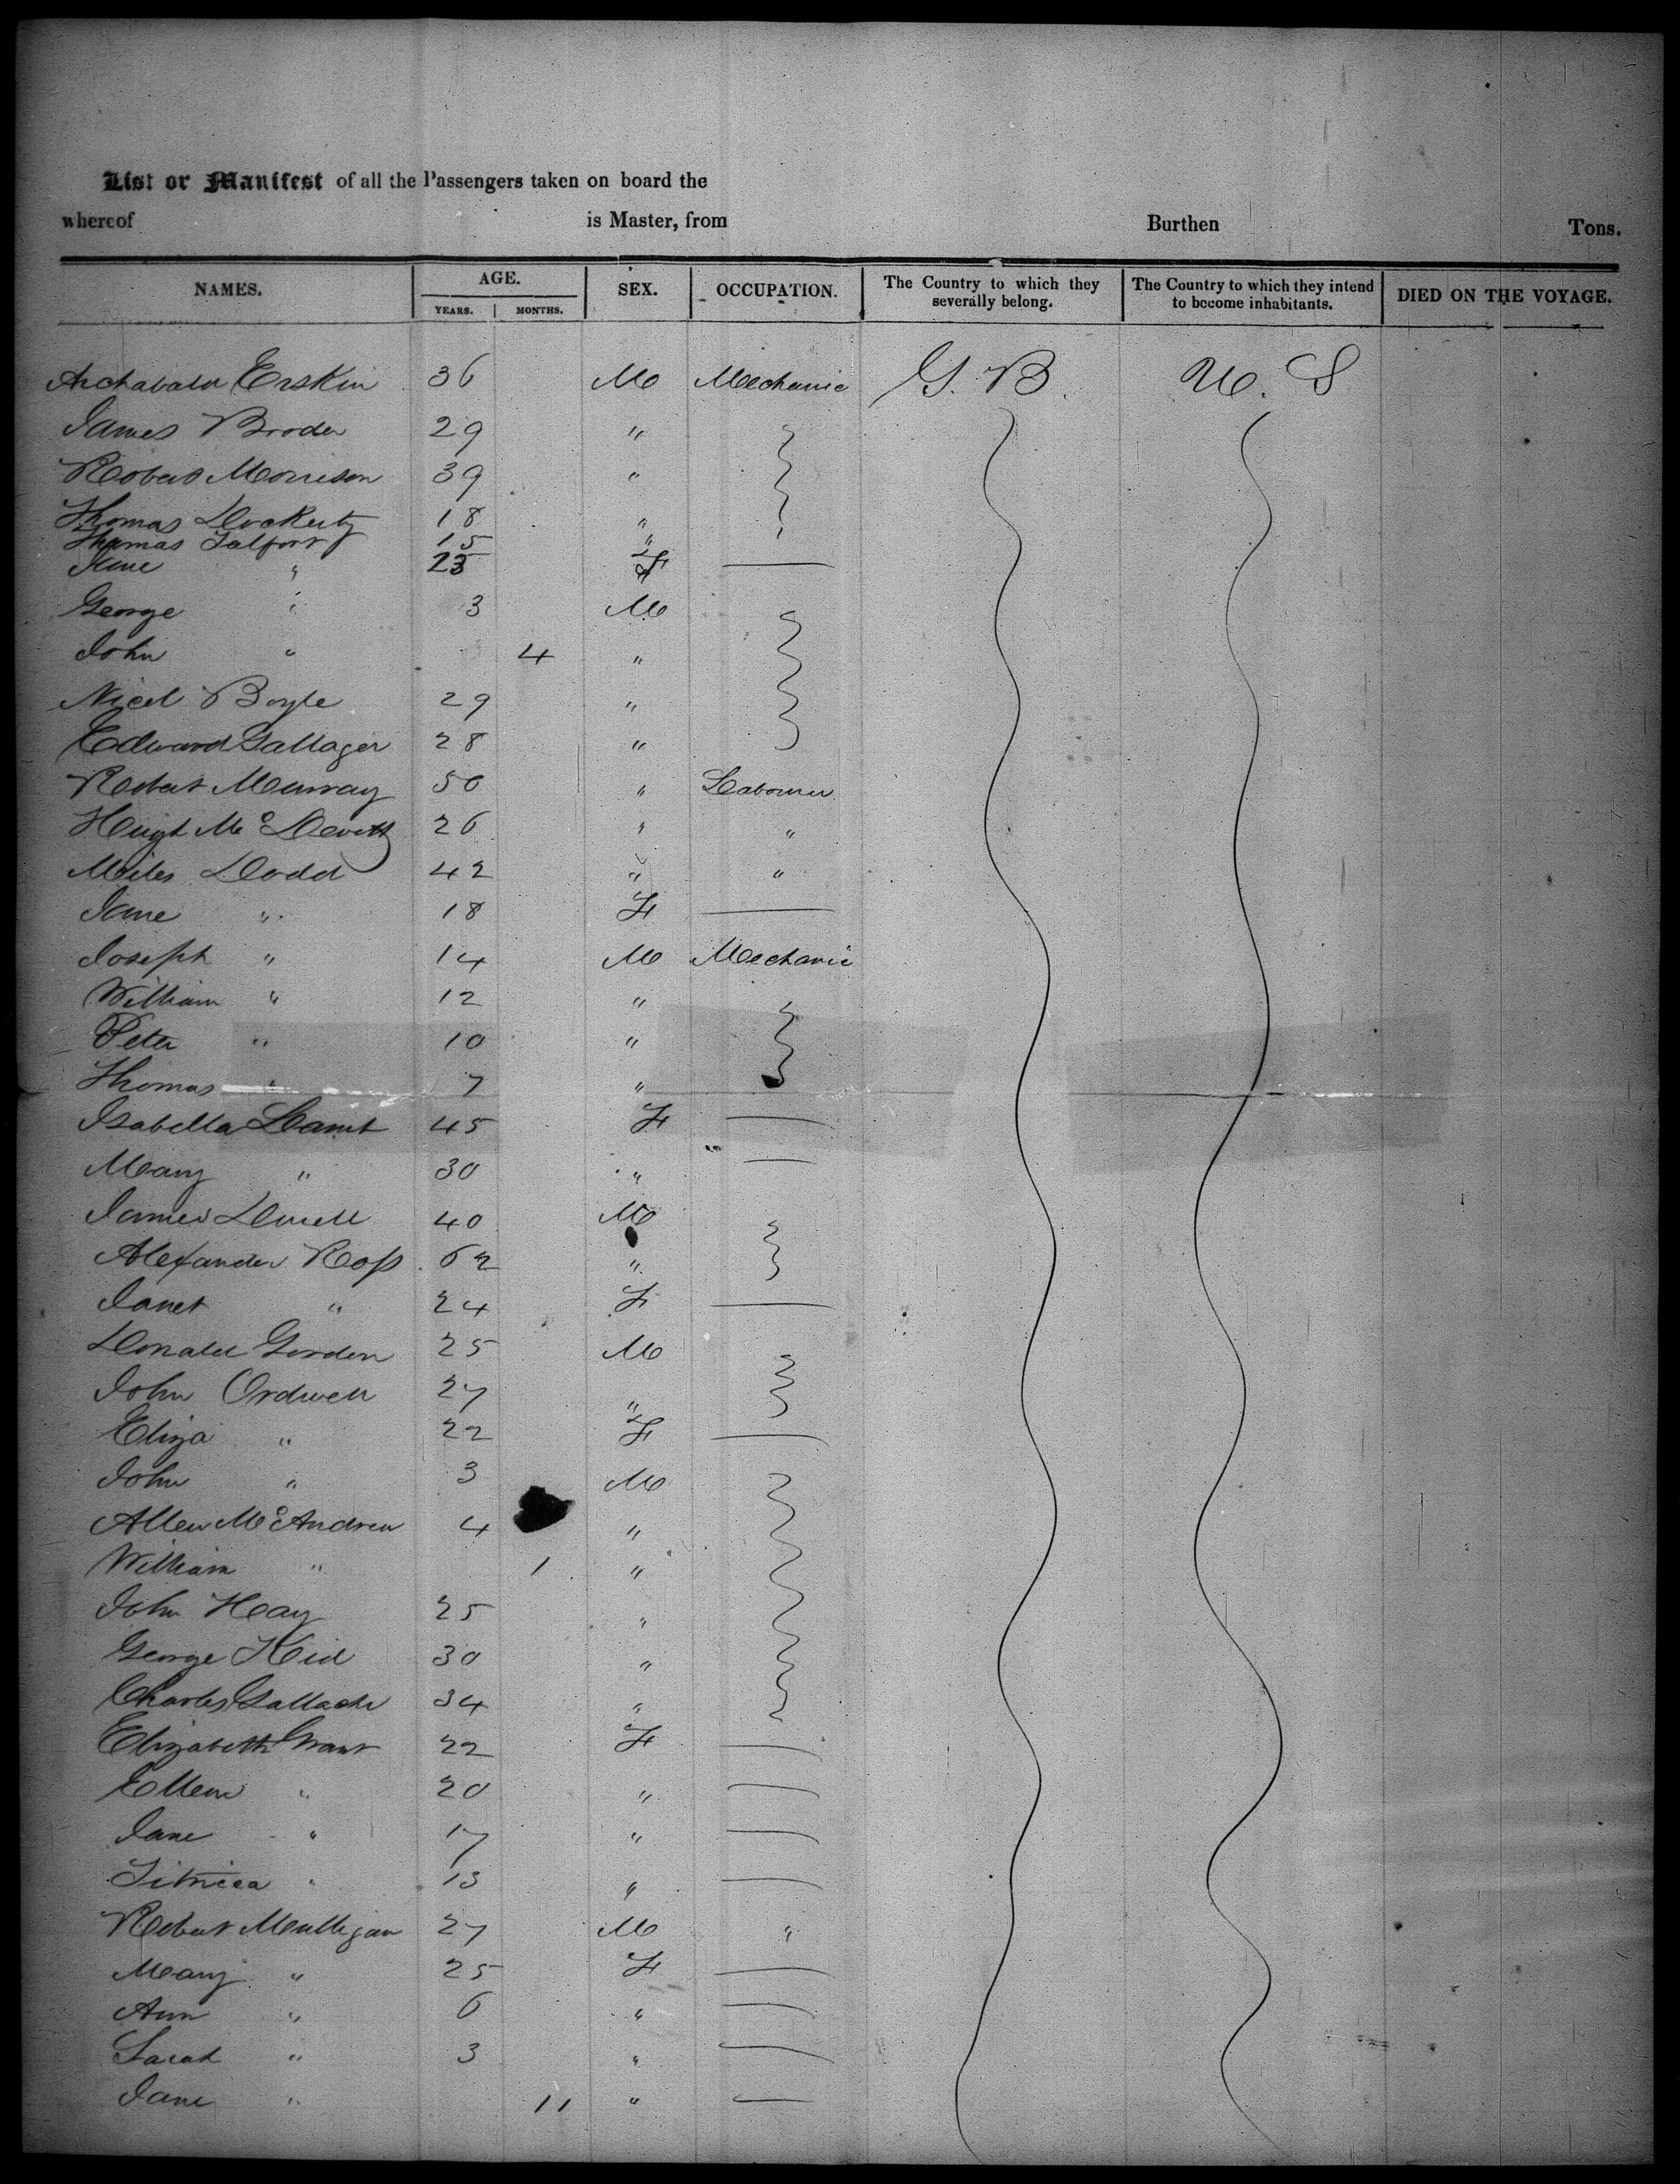 List or Manifest of all the Passengers taken on board the
whereof is Master, from Burthen Tons.
NAMES. AGE. SEX. OCCUPATION. The Country to which they severally belong. The Country to which they intend to become inhabitants. DIED ON THE VOYAGE.
YEARS. MONTHS.
Archabald Erskin 36 M Mechanic G. B. U. S
James Broder 29 "
Robert Morrison 39 "
Thomas Dockerty 18 "
Thomas Talfort 15 "
Jane " 23 F
George " 3 M
John " 4 "
Niel Boyle 29 "
Edward Gallager 28 "
Robert Murray 50 " Labourer
Hugh McDevitt 26 " "
Miles Dodd 42 " "
Jane " 18 F
Joseph " 14 M Mechanic
William " 12 "
Peter " 10 "
Thomas " 7 "
Isabella 45 F
Mary " 30 "
James 40 M
Alexander Ross 62 "
Janet " 24 F
Donald Gordon 25 M
John Ordwell 27 "
Eliza " 22 F
John " 3 M
Allen McAndrew 4 "
William " 1 "
John Hay 25 "
George 30 "
Charles 34 "
Elizabeth Grant 22 F
Ellen " 20 "
Jane " 17 "
" 13 "
Robert Mulligan 27 M "
Mary " 25 F
Ann " 6 "
Sarah " 3 "
Jane " 11 "